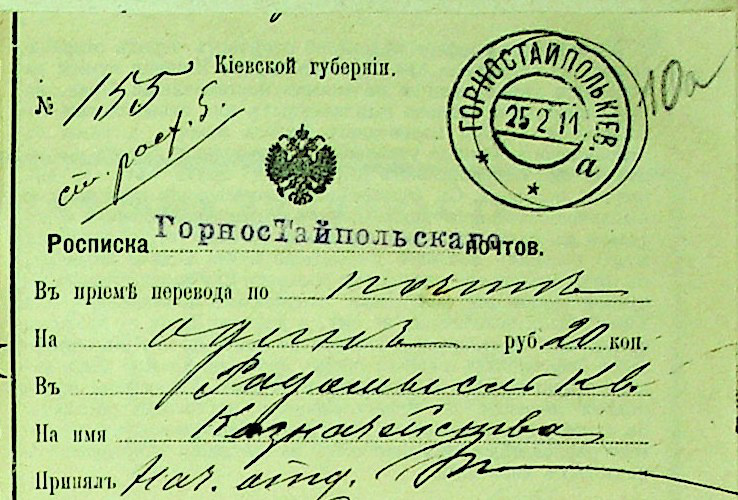 Кіевской губерніи.
№ 155
ст. расх. 5.
ГОРНОСТАЙПОЛЬ КІЕВ.
25 2 11
а
10а
Росписка ГорносТайпольскаго почтов.
Въ пріемѣ перевода по почтѣ
На одинъ руб. 20 коп.
Въ Радомысль Кв.
На имя Казначейства
Принялъ Нач. отд.